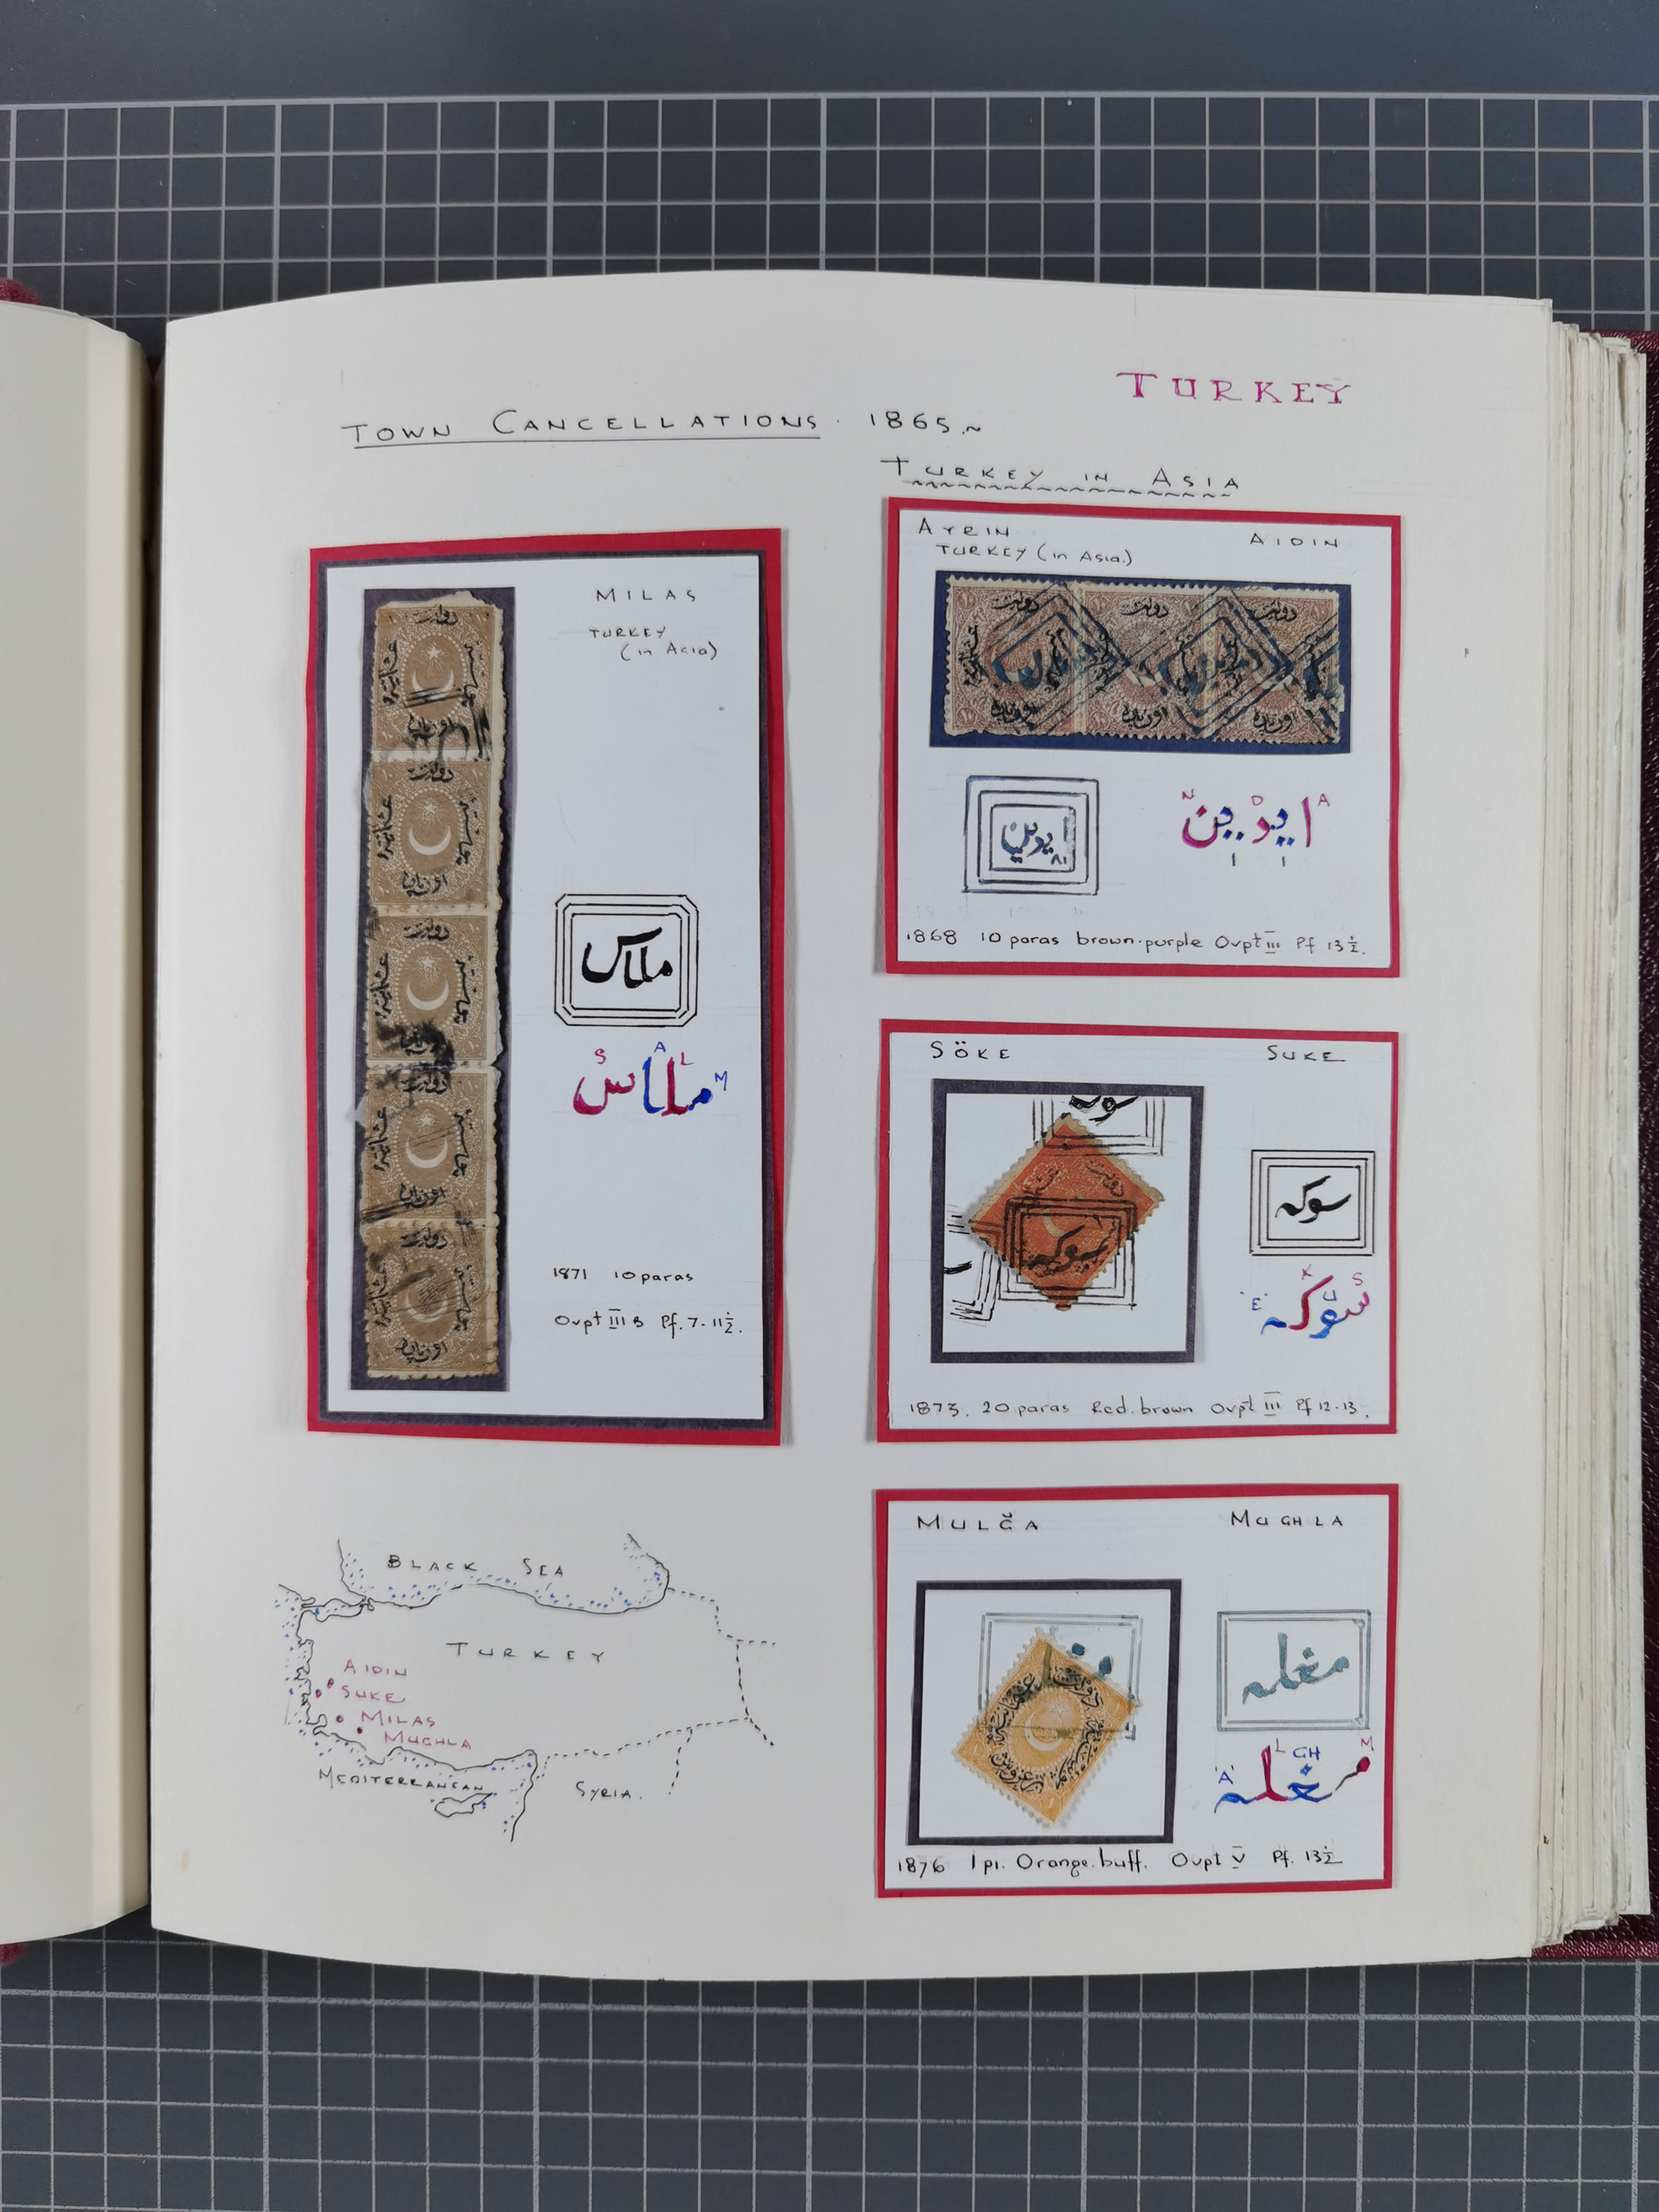 TURKEY
TOWN CANCELLATIONS. 1865.~
TURKEY IN ASIA
MILAS
TURKEY
(in Asia)
دولت
عثمانیه
اون پاره
ملاس
S A L M
ملاس
1871 10 paras
Ovpt III B Pf. 7-11½.
AYRIN AIDIN
TURKEY (in Asia.)
دولت دولت دولت
اون پاره اون پاره اون پاره
ايدين
٨١
N D A
ايدين
I I
1868 10 paras brown-purple Ovpt III Pf 13½.
SÖKE SUKE
سوكه
سوكه
K S
'E' U
سوكه
1873. 20 paras Red.brown Ovpt III Pf 12-13.
MULĞA MUGHLA
مغله
L GH M
'A'
مغله
1876 1 pi. Orange.buff. Ovpt V Pf. 13½
BLACK SEA
TURKEY
AIDIN
SUKE
MILAS
MUGHLA
MEDITERRANEAN
SYRIA.